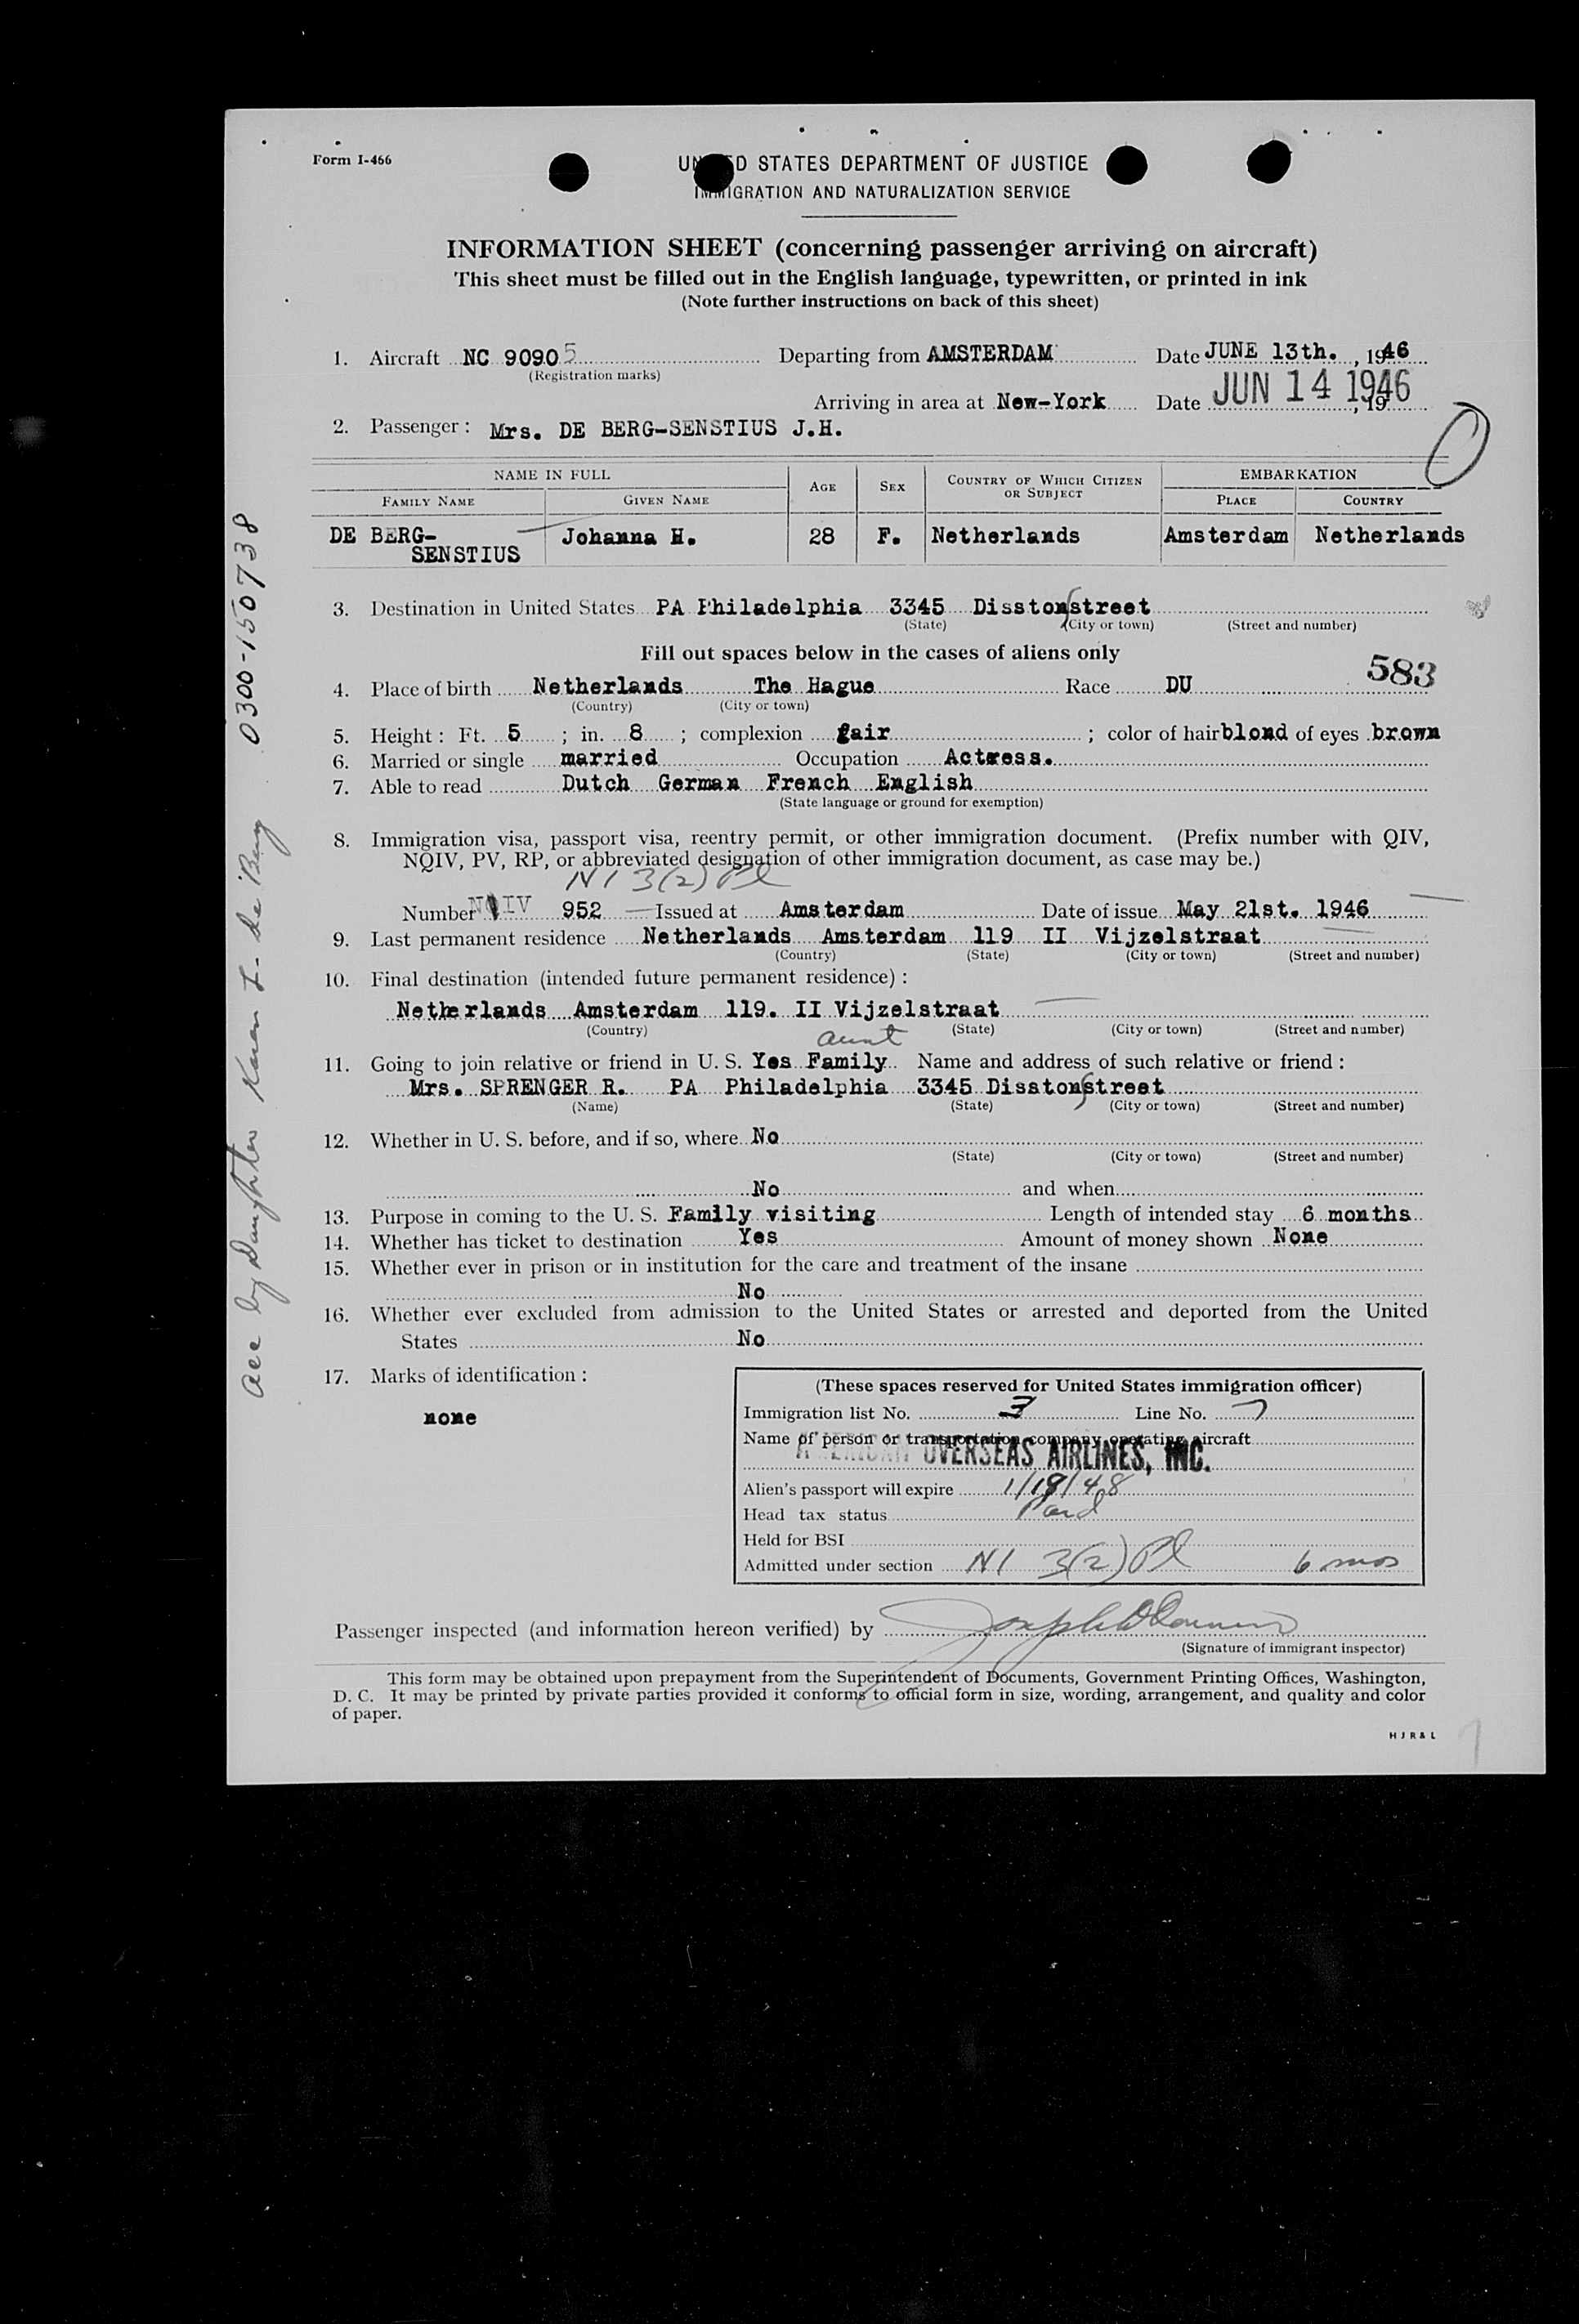 Form I-466
UNITED STATES DEPARTMENT OF JUSTICE
IMMIGRATION AND NATURALIZATION SERVICE
INFORMATION SHEET (concerning passenger arriving on aircraft)
This sheet must be filled out in the English language, typewritten, or printed in ink
(Note further instructions on back of this sheet)
1. Aircraft NC 90905 Departing from AMSTERDAM Date JUNE 13th. , 1946
(Registration marks)
Arriving in area at New-York Date JUN 14 1946 , 19
2. Passenger : Mrs. DE BERG-SENSTIUS J.H.
NAME IN FULL AGE SEX COUNTRY OF WHICH CITIZEN OR SUBJECT EMBARKATION
FAMILY NAME GIVEN NAME PLACE COUNTRY
DE BERG- Johanna H. 28 F. Netherlands Amsterdam Netherlands
SENSTIUS
3. Destination in United States PA Philadelphia 3345 Disstonstreet
(State) (City or town) (Street and number)
Fill out spaces below in the cases of aliens only
583
4. Place of birth Netherlands The Hague Race DU
(Country) (City or town)
5. Height : Ft. 5 ; in. 8 ; complexion fair ; color of hair blond of eyes brown
6. Married or single married Occupation Actress.
7. Able to read Dutch German French English
(State language or ground for exemption)
8. Immigration visa, passport visa, reentry permit, or other immigration document. (Prefix number with QIV,
NQIV, PV, RP, or abbreviated designation of other immigration document, as case may be.)
NI 3(2) Pl
Number NQIV 952 Issued at Amsterdam Date of issue May 21st. 1946
9. Last permanent residence Netherlands Amsterdam 119 II Vijzelstraat
(Country) (State) (City or town) (Street and number)
10. Final destination (intended future permanent residence) :
Netherlands Amsterdam 119. II Vijzelstraat
(Country) (State) (City or town) (Street and number)
aunt
11. Going to join relative or friend in U. S. Yes Family Name and address of such relative or friend :
Mrs. SPRENGER R. PA Philadelphia 3345 Disstonstreet
(Name) (State) (City or town) (Street and number)
12. Whether in U. S. before, and if so, where No
(State) (City or town) (Street and number)
No and when
13. Purpose in coming to the U. S. Family visiting Length of intended stay 6 months
14. Whether has ticket to destination Yes Amount of money shown None
15. Whether ever in prison or in institution for the care and treatment of the insane
No
16. Whether ever excluded from admission to the United States or arrested and deported from the United
States No
17. Marks of identification :
none
(These spaces reserved for United States immigration officer)
Immigration list No. 3 Line No. 7
Name of person or transportation company operating aircraft
AMERICAN OVERSEAS AIRLINES, INC.
Alien's passport will expire 1/18/48
Head tax status Paid
Held for BSI
Admitted under section NI 3(2) Pl 6 mos
Passenger inspected (and information hereon verified) by
(Signature of immigrant inspector)
This form may be obtained upon prepayment from the Superintendent of Documents, Government Printing Offices, Washington,
D. C. It may be printed by private parties provided it conforms to official form in size, wording, arrangement, and quality and color
of paper.
H J R & L
acc by Daughter Karen I. de Berg 0300-150738